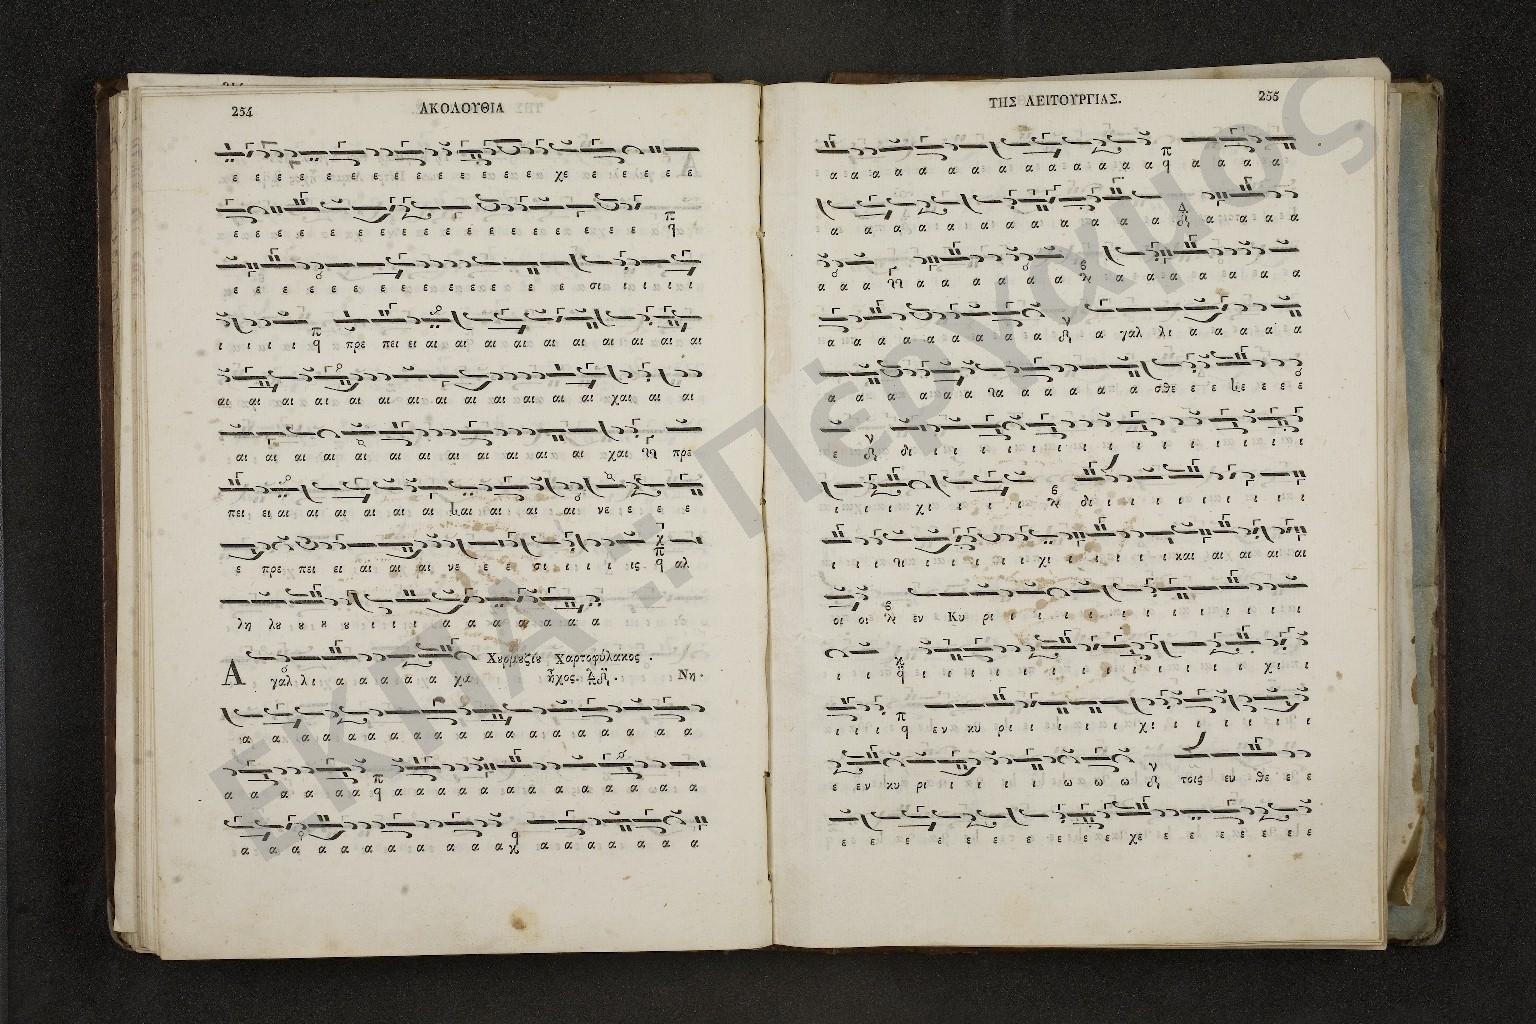 254
ΑΚΟΛΟΥΘΙΑ
ε ε ε ε ε ε ε ε ε ε ε ε ε ε χε ε ε ε ε ε
ε ε ε ε ε ε ε ε ε ε ε ε ε ε ε ε ε
ε ε ε ε ε ε ε ε ε ε ε ε ε ε σι ι ι ι ι
ι ι ι ι πρε πει ει αι αι αι αι αι αι αι αι αι αι αι
αι αι αι αι αι αι αι αι αι αι αι αι αι χαι αι αι
αι αι αι αι αι αι αι αι αι αι αι αι αι χαι πρε
πει ει αι αι αι αι αι αι αι αι αι αι νε ε ε ε
ε πρε πει ει αι αι αι νε ε ε σι ι ι ι ις αλ
λη λȣ ȣ ȣ ȣ ι ι ι α α α α α α α
Χυρμυζίȣ Χαρτοφύλακος .
Α γαλ λι α α α α α χα ἦχος. Νη.
α α α α α α α α α α α α α α α α α α
α α α α α α α α α α α α α α α α α α
α α α α α α α α α α α α α α α α α
ΤΗΣ ΛΕΙΤΟΥΡΓΙΑΣ.
255
α α α α α α α α α α α α α α α α α
α α α α α α α α α α α α α α α α
α α α α α α α α α α α α α α α α
α α α α α α α α α α γαλ λι α α α α α
α α α α α α α α α α α σθε ε ε ε ε ε
ε δι ι ι ι ι ι ι ι ι ι ι ι ι ι
ι ι ι χι ι ι ι ι δι ι ι ι ι ι ι ι
ι ι ι ι ι ι ι χι ι ι ι ι και αι αι αι αι
οι οι εν Κυ ρι ι ι ι ι ι ι ι ι ι ι
ι ι ι ι ι ι ι ι ι ι ι ι ι χι ι
ι ι ι εν κυ ρι ι ι ι ι χι ι ι ι ι ι
ε εν κυ ρι ι ι ι ι ω ω ω τοις ευ θε ε ε
ε ε ε ε ε ε ε ε ε ε χε ε ε ε ε ε ε
ΕΚΠΑ :: Πέργαμος